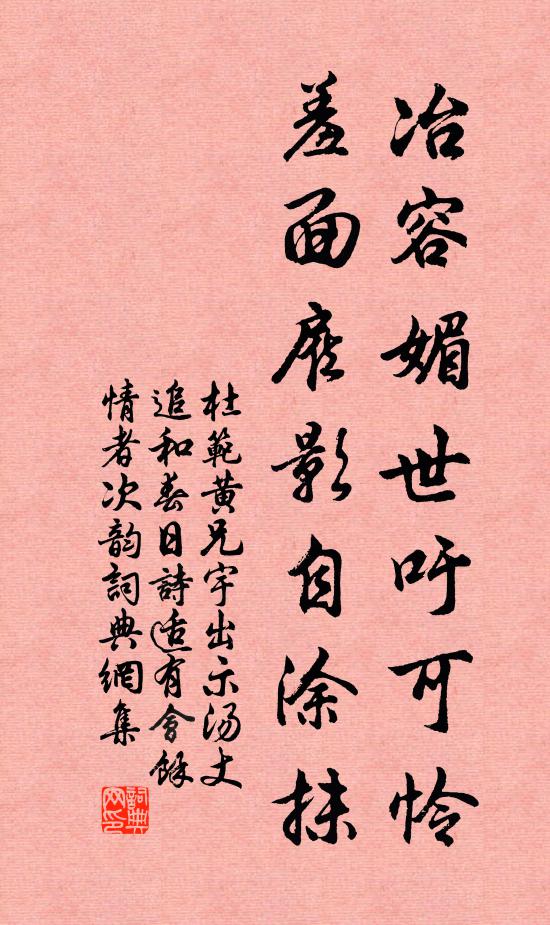 冶容媚世吁可怜
羞面顾影自涂抹
杜範黄兄宇出示汤丈
追和春日詩适有會馀
情者次韵詞典網集
詞典网印